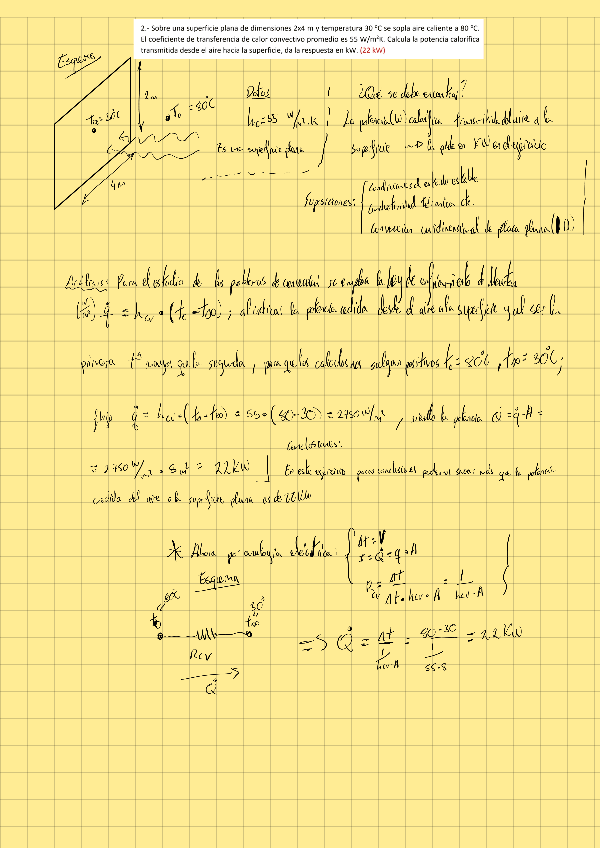 2.- Sobre una superficie plana de dimensiones 2x4 m y temperatura 30 ºC se sopla aire caliente a 80 ºC.
El coeficiente de transferencia de calor convectivo promedio es 55 W/m²K. Calcula la potencia calorífica
transmitida desde el aire hacia la superficie, da la respuesta en kW. (22 kW)
Esquema
2m
4m
T∞=30ºC
T₀ = 80ºC
Datos
hc=55 W/m²·K
Es una superficie plana
¿Qué se debe encontrar?
La potencia (W) calorífica transmitida del aire a la
superficie → la pide en KW en el ejercicio
Suposiciones:
Condiciones de estado estable
Conductividad Térmica cte.
Convección unidimensional de placa plana (1D)
Análisis: Para el estudio de los problemas de convección se emplea la ley de enfriamiento de Newton
q̇ = hcv · (t₀ - t∞) ; al indicar la potencia cedida desde el aire a la superficie y al ser la
primera tª mayor que la segunda, para que los calculos nos salgan positivos t₀ = 80ºC, t∞ = 30ºC;
flujo q̇ = hcv · (t₀ - t∞) = 55 · (80-30) = 2750 W/m² , siendo la potencia Q̇ = q̇ · A =
= 2750 W/m² · 8 m² = 22 KW
Conclusiones:
En este ejercicio pocas conclusiones podemos sacar más que la potencia
cedida del aire a la superficie plana es de 22 kW
* Ahora por analogía eléctrica:
Δt = V
I = Q̇ = q · A
Rcv = Δt / Δt · hcv · A = 1 / hcv · A
Esquema
80ºC
t₀
30º
t∞
Rcv
Q̇
=> Q̇ = Δt / 1/hcv·A = 80-30 / 1/55·8 = 22 KW